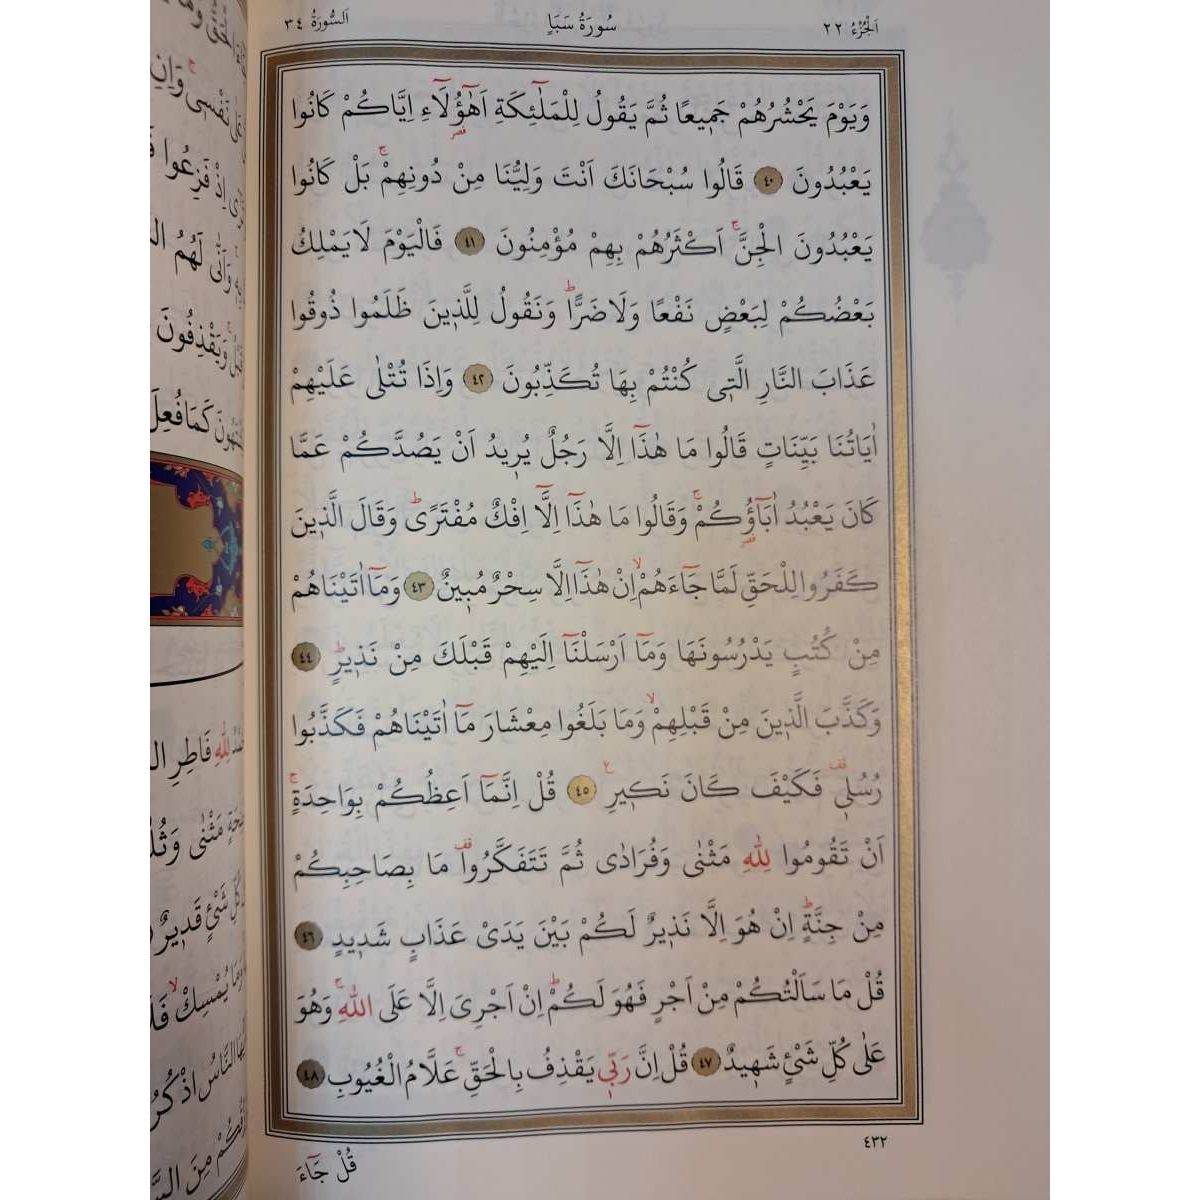 اَلْجُزْءُ ٢٢ سُورَةُ سَبَاٍ اَلسُّورَةُ ٣٤
وَيَوْمَ يَحْشُرُهُمْ جَمٖيعًا ثُمَّ يَقُولُ لِلْمَلٰٓئِكَةِ اَهٰٓؤُ۬لَٓاءِ اِيَّاكُمْ كَانُوا
يَعْبُدُونَ ٤٠ قَالُوا سُبْحَانَكَ اَنْتَ وَلِيُّنَا مِنْ دُونِهِمْۚ بَلْ كَانُوا
يَعْبُدُونَ الْجِنَّۚ اَكْثَرُهُمْ بِهِمْ مُؤْمِنُونَ ٤١ فَالْيَوْمَ لَا يَمْلِكُ
بَعْضُكُمْ لِبَعْضٍ نَفْعًا وَلَا ضَرًّاۜ وَنَقُولُ لِلَّذٖينَ ظَلَمُوا ذُوقُوا
عَذَابَ النَّارِ الَّتٖى كُنْتُمْ بِهَا تُكَذِّبُونَ ٤٢ وَاِذَا تُتْلٰى عَلَيْهِمْ
اٰيَاتُنَا بَيِّنَاتٍ قَالُوا مَا هٰذَٓا اِلَّا رَجُلٌ يُرٖيدُ اَنْ يَصُدَّكُمْ عَمَّا
كَانَ يَعْبُدُ اٰبَٓاؤُ۬كُمْۚ وَقَالُوا مَا هٰذَٓا اِلَّٓا اِفْكٌ مُفْتَرًىۜ وَقَالَ الَّذٖينَ
كَفَرُوا لِلْحَقِّ لَمَّا جَٓاءَهُمْۙ اِنْ هٰذَٓا اِلَّا سِحْرٌ مُبٖينٌ ٤٣ وَمَٓا اٰتَيْنَاهُمْ
مِنْ كُتُبٍ يَدْرُسُونَهَا وَمَٓا اَرْسَلْنَٓا اِلَيْهِمْ قَبْلَكَ مِنْ نَذٖيرٍۜ ٤٤
وَكَذَّبَ الَّذٖينَ مِنْ قَبْلِهِمْۙ وَمَا بَلَغُوا مِعْشَارَ مَٓا اٰتَيْنَاهُمْ فَكَذَّبُوا
رُسُلٖى۠ فَكَيْفَ كَانَ نَكٖيرِ ٤٥ قُلْ اِنَّمَٓا اَعِظُكُمْ بِوَاحِدَةٍۚ
اَنْ تَقُومُوا لِلّٰهِ مَثْنٰى وَفُرَادٰى ثُمَّ تَتَفَكَّرُوا۠ مَا بِصَاحِبِكُمْ
مِنْ جِنَّةٍۜ اِنْ هُوَ اِلَّا نَذٖيرٌ لَكُمْ بَيْنَ يَدَىْ عَذَابٍ شَدٖيدٍ ٤٦
قُلْ مَا سَاَلْتُكُمْ مِنْ اَجْرٍ فَهُوَ لَكُمْۜ اِنْ اَجْرِىَ اِلَّا عَلَى اللّٰهِۚ وَهُوَ
عَلٰى كُلِّ شَىْءٍ شَهٖيدٌ ٤٧ قُلْ اِنَّ رَبّٖى يَقْذِفُ بِالْحَقِّۚ عَلَّامُ الْغُيُوبِ ٤٨
٤٣٢
قُلْ جَٓاءَ